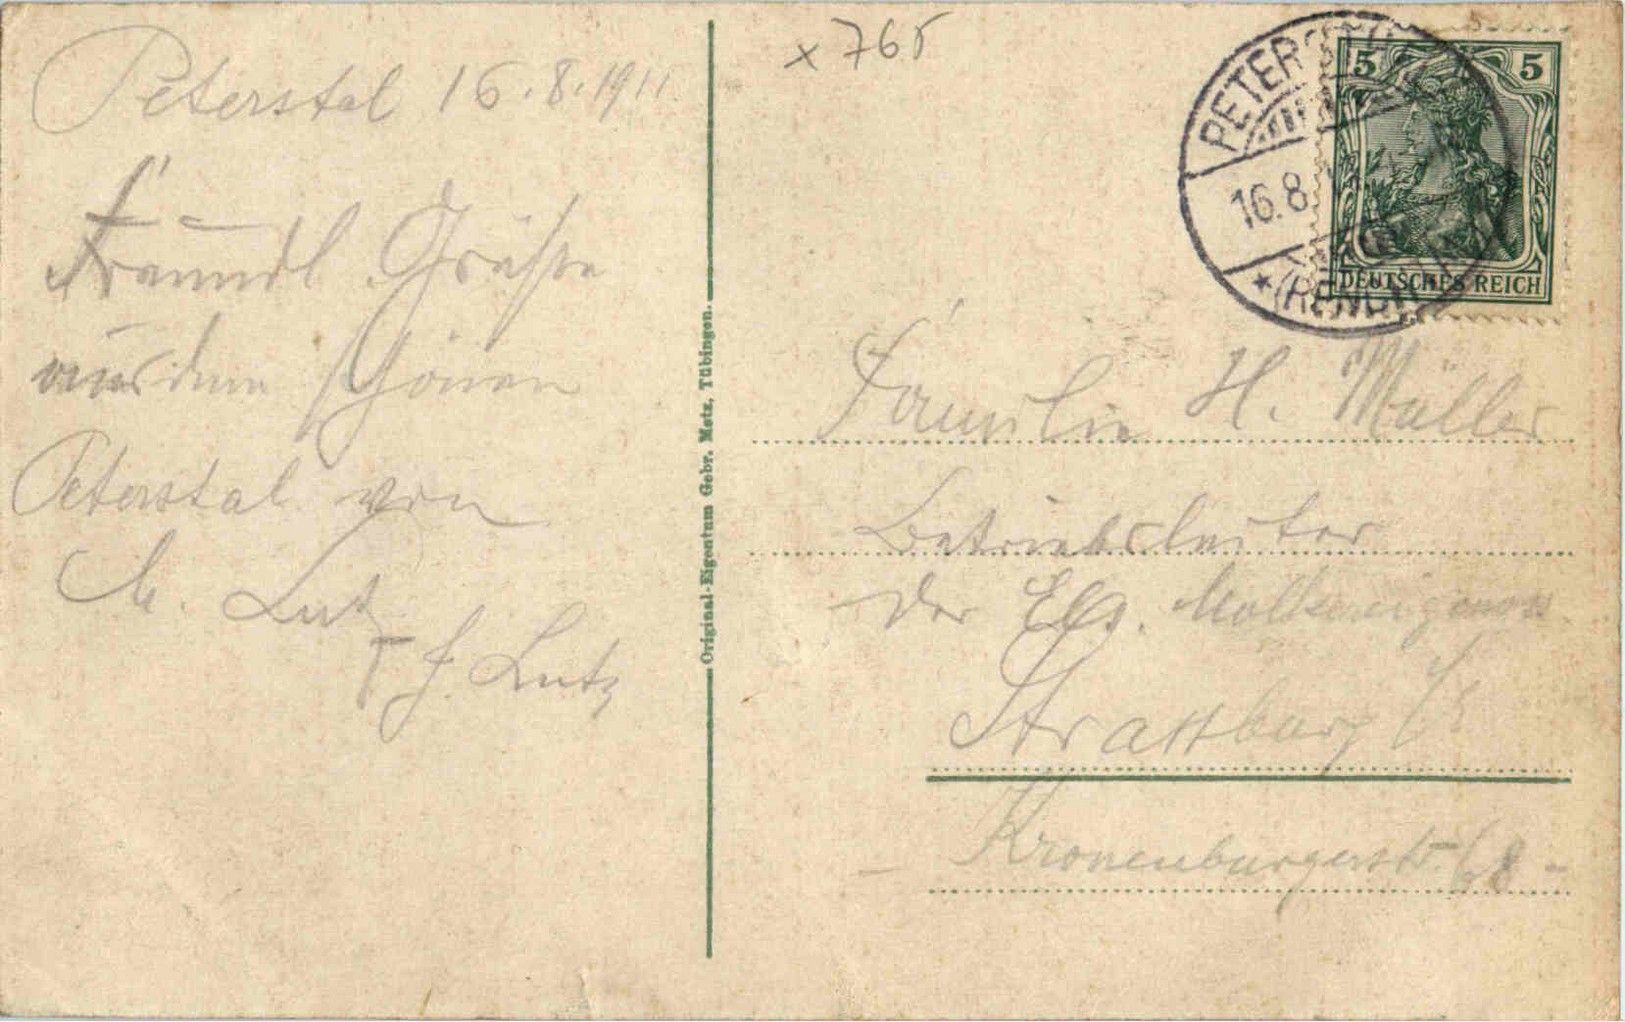 Peterstal 16.8.1911
Freundl Grüsse
aus dem schönen
Peterstal von
M. Lutz
J. Lutz
Original-Eigentum Gebr. Metz, Tübingen.
x 765
PETERSTAL
16.8.
(RENCH
5 5
DEUTSCHES REICH
Familie H. Müller
Betriebsleiter
der Els. Molkereigenoss
Strassburg i/E
Kronenburgerstr. 68